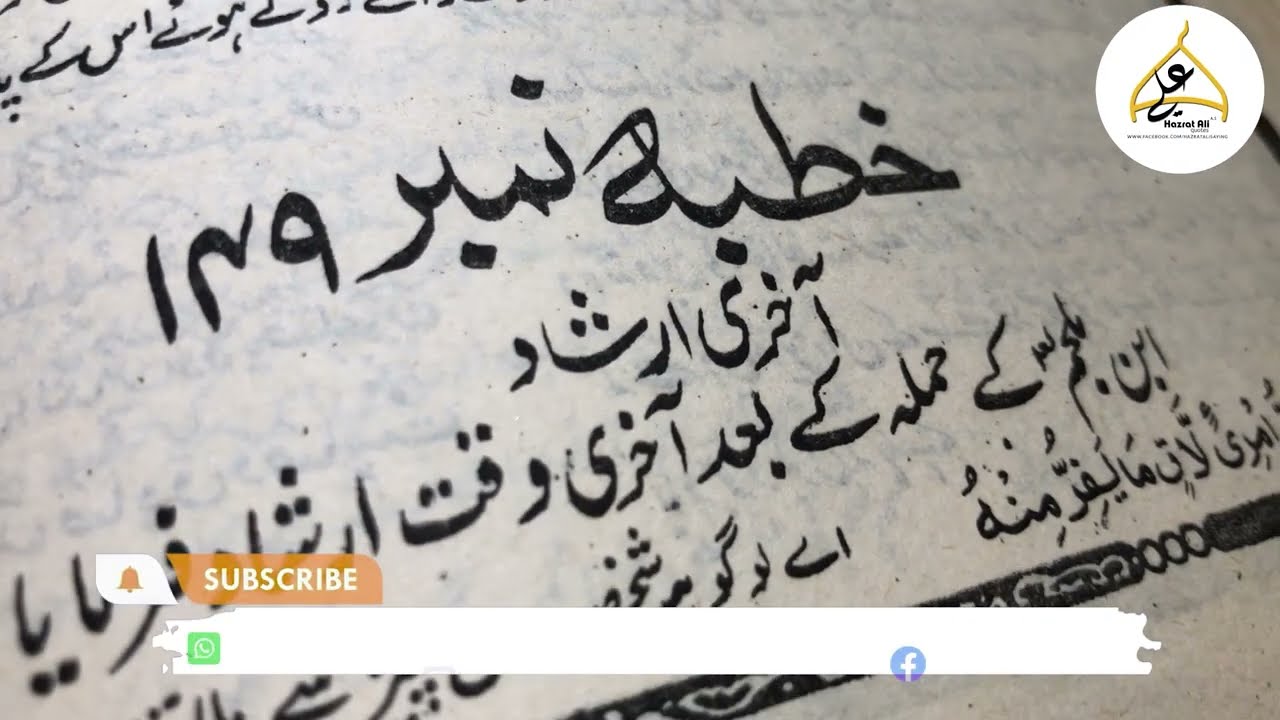 ہوئے اس کے
خطبہ نمبر ۱۴۹
آخری ارشاد
ابن ملجم کے حملہ کے بعد آخری وقت ارشاد فرمایا
لَاقٍ مَا يَفِرُّ مِنْهُ
اے لوگو ہر شخص
علی
Hazrat Ali
A.S
quotes
WWW.FACEBOOK.COM/HAZRATALISAYING
SUBSCRIBE